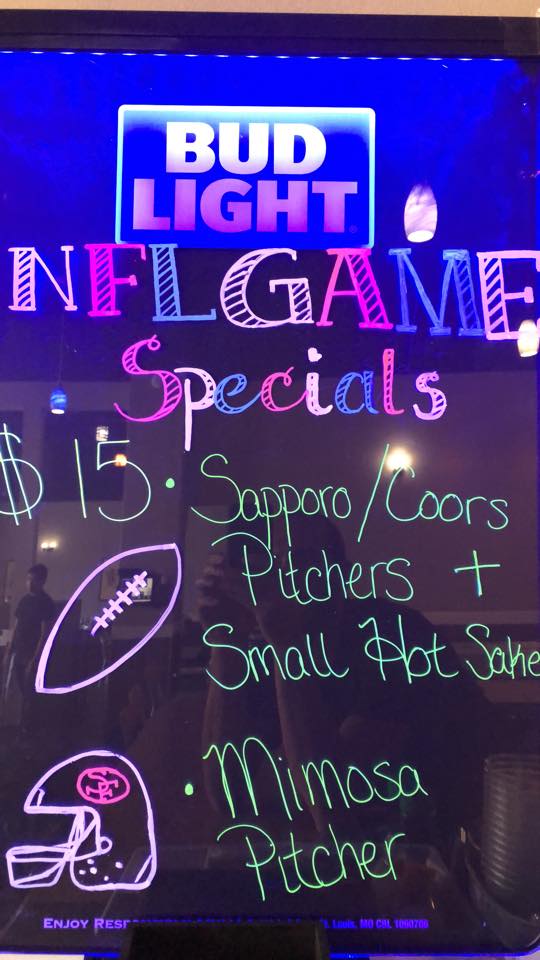 BUD
LIGHT
NFL GAME
Specials
$15 • Sapporo/Coors
Pitchers +
Small Hot Sake
SF
• Mimosa
Pitcher
ENJOY St. Louis, MO